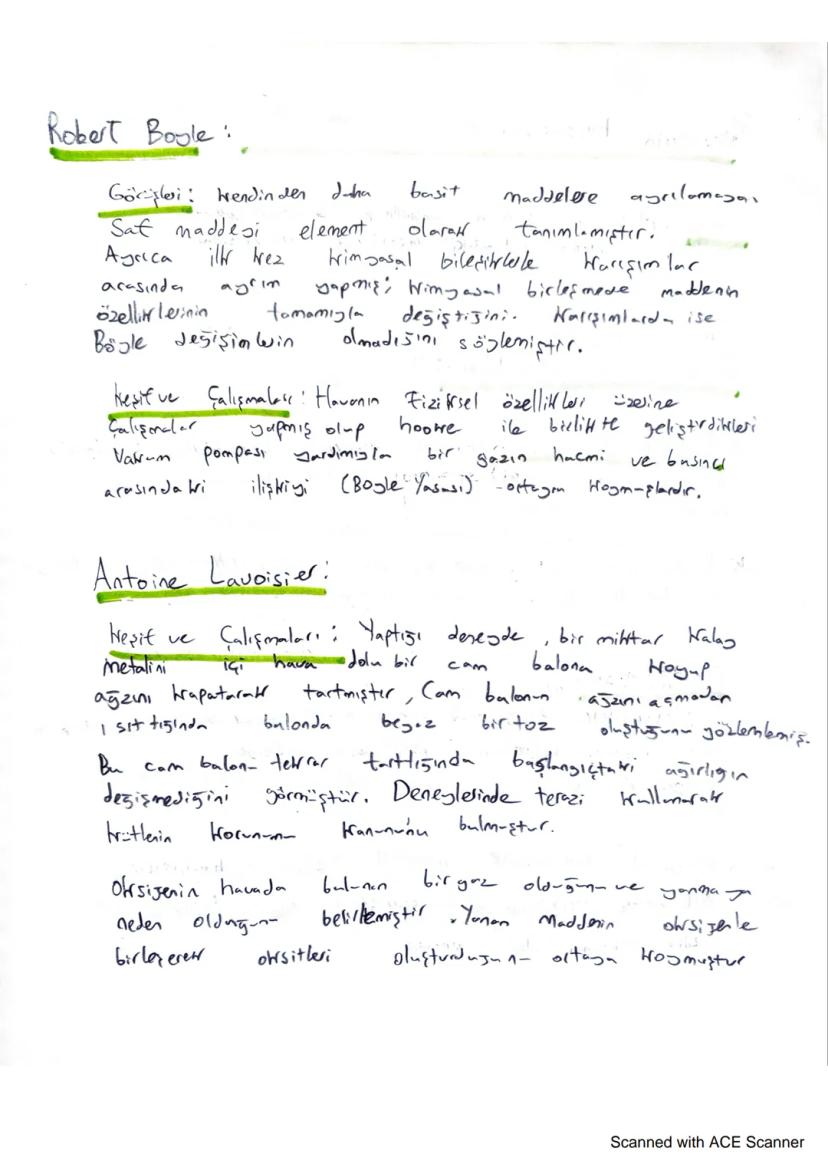 Robert Boyle :
Görüşleri : Kendinden daha basit maddelere ayrılamayan
Saf maddeyi element olarak tanımlamıştır.
Ayrıca ilk kez kimyasal bileşiklerle karışımlar
arasında ayrım yapmış; kimyasal birleşmede maddenin
özelliklerinin tamamıyla değiştiğini. Karışımlarda ise
Böyle değişimlerin olmadığını söylemiştir.
Keşif ve Çalışmaları : Havanın Fiziksel özellikleri üzerine
Çalışmalar yapmış olup hooke ile birlikte geliştirdikleri
Vakum pompası yardımıyla bir gazın hacmi ve basıncı
arasındaki ilişkiyi (Boyle Yasası) ortaya koymuşlardır.
Antoine Lavoisier :
Keşif ve Çalışmaları : Yaptığı deneyde , bir miktar Kalay
metalini içi hava dolu bir cam balona Koyup
ağzını kapatarak tartmıştır , Cam balonun ağzını açmadan
ısıttığında balonda beyaz bir toz oluştuğunu gözlemlemiş.
Bu cam balonu tekrar tarttığında başlangıçtaki ağırlığın
değişmediğini görmüştür. Deneylerinde terazi kullanarak
kütlenin korunumu kanununu bulmuştur.
Oksijenin havada bulunan bir gaz olduğunu ve yanmaya
neden olduğunu belirlemiştir . Yanan Maddenin oksijenle
birleşerek oksitleri oluşturduğunu ortaya koymuştur
Scanned with ACE Scanner